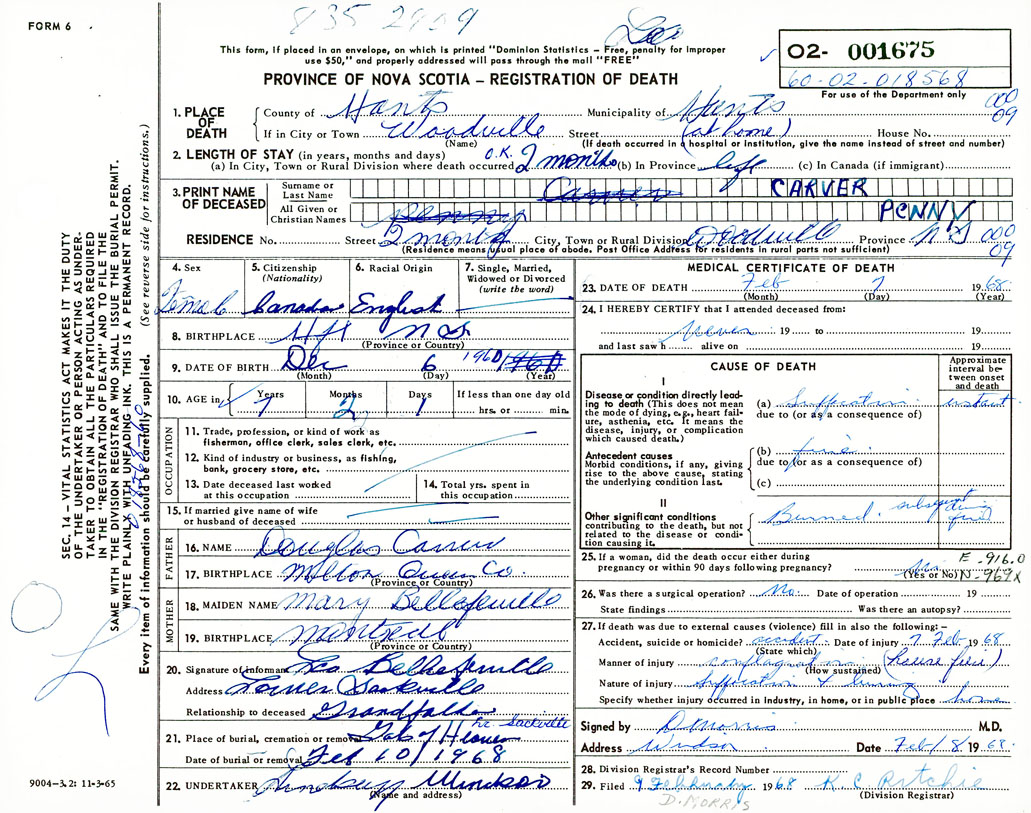 FORM 6
835 2909
Leo
This form, if placed in an envelope, on which is printed "Dominion Statistics – Free, penalty for improper
use $50," and properly addressed will pass through the mail "FREE"
PROVINCE OF NOVA SCOTIA – REGISTRATION OF DEATH
O2- 001675
60-02-018568
For use of the Department only
000
09
1. PLACE OF DEATH
County of Hants Municipality of Hants
If in City or Town Woodville Street (at home) House No.
(Name) (If death occurred in a hospital or institution, give the name instead of street and number)
2. LENGTH OF STAY (in years, months and days) O.K.
(a) In City, Town or Rural Division where death occurred 2 months (b) In Province life (c) In Canada (if immigrant)
3. PRINT NAME OF DECEASED
Surname or Last Name Carver CARVER
All Given or Christian Names Penny PENNY
RESIDENCE No. Street 2 months City, Town or Rural Division Woodville Province N S 000
09
(Residence means usual place of abode. Post Office Address for residents in rural parts not sufficient)
4. Sex Female
5. Citizenship (Nationality) Canada
6. Racial Origin English
7. Single, Married, Widowed or Divorced (write the word)
8. BIRTHPLACE Hfx N S
(Province or Country)
9. DATE OF BIRTH Dec 6 1960 1960
(Month) (Day) (Year)
10. AGE in Years 7 Months 2 Days 1 If less than one day old
hrs. or min.
OCCUPATION
11. Trade, profession, or kind of work as
fisherman, office clerk, sales clerk, etc.
12. Kind of industry or business, as fishing,
bank, grocery store, etc.
13. Date deceased last worked
at this occupation
14. Total yrs. spent in
this occupation
15. If married give name of wife
or husband of deceased
FATHER
16. NAME Douglas Carver
17. BIRTHPLACE Milton Queen Co.
(Province or Country)
MOTHER
18. MAIDEN NAME Mary Bellefeuille
19. BIRTHPLACE Montreal
(Province or Country)
20. Signature of informant Leo Bellefeuille
Address Lower Sackville
Relationship to deceased Grandfather
Lr. Sackville
21. Place of burial, cremation or removal Gate of Heaven
Date of burial or removal Feb 10/1968
22. UNDERTAKER Lindsay Windsor
(Name and address)
MEDICAL CERTIFICATE OF DEATH
23. DATE OF DEATH Feb 7 1968
(Month) (Day) (Year)
24. I HEREBY CERTIFY that I attended deceased from:
Never 19 to 19
and last saw h alive on 19
CAUSE OF DEATH
Approximate interval between onset and death
I
Disease or condition directly leading to death (This does not mean the mode of dying, e.g., heart failure, asthenia, etc. It means the disease, injury, or complication which caused death.)
(a) Suffocation instant
due to (or as a consequence of)
Antecedent causes
Morbid conditions, if any, giving rise to the above cause, stating the underlying condition last.
(b) fire
due to (or as a consequence of)
(c)
II
Other significant conditions
contributing to the death, but not related to the disease or condition causing it.
Burned
25. If a woman, did the death occur either during
pregnancy or within 90 days following pregnancy? No
(Yes or No)
E-916.0
N-969X
26. Was there a surgical operation? No. Date of operation 19
State findings Was there an autopsy?
27. If death was due to external causes (violence) fill in also the following:–
Accident, suicide or homicide? accident Date of injury 7 Feb 1968
(State which)
Manner of injury conflagration (house fire)
(How sustained)
Nature of injury Suffocation & burning
Specify whether injury occurred in Industry, in home, or in public place home
Signed by D Morris M.D.
Address Windsor Date Feb/8/1968.
28. Division Registrar's Record Number
29. Filed 9 February 1968 K C Ritchie
(Division Registrar)
D. MORRIS
SEC. 14 – VITAL STATISTICS ACT MAKES IT THE DUTY
OF THE UNDERTAKER OR PERSON ACTING AS UNDER-
TAKER TO OBTAIN ALL THE PARTICULARS REQUIRED
IN THE "REGISTRATION OF DEATH" AND TO FILE THE
SAME WITH THE DIVISION REGISTRAR WHO SHALL ISSUE THE BURIAL PERMIT.
WRITE PLAINLY WITH UNFADING INK. THIS IS A PERMANENT RECORD.
Every item of information should be carefully supplied. (See reverse side for instructions.)
9004–3.2: 11-3-65